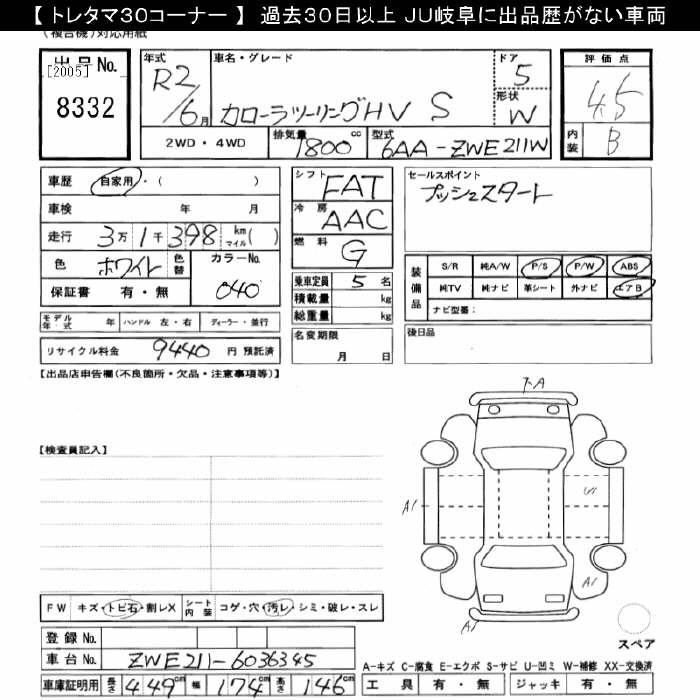 【 トレタマ30コーナー 】 過去30日以上 JU岐阜に出品歴がない車両
(複合機)対応用紙
出品 No.
[2005]
8332
年式
R2/6月
車名・グレード
カローラツーリングHV S
ドア
5
形状
W
評価点
4.5
内装
B
2WD・4WD
排気量
1800 cc
型式
6AA-ZWE211W
車歴 自家用・( )
車検 年 月
走行 3万1千398 km マイル( )
色 ホワイト 色替
カラーNo.
040
保証書 有・無
モデル年・式 年 ハンドル 左・右 ディーラー・並行
リサイクル料金 9440 円 預託済
シフト FAT
冷房 AAC
燃料 G
乗車定員 5 名
積載量 kg
総重量 kg
名変期限
月 日
セールスポイント
プッシュスタート
装備品
S/R 純A/W P/S P/W ABS
純TV 純ナビ 革シート 外ナビ エアB
ナビ型番:
後日品
【出品店申告欄(不良箇所・欠品・注意事項等)】
【検査員記入】
A1
A1
A1
A1
FW キズ・トビ石・割レX
シート内装 コゲ・穴・汚レ・シミ・破レ・スレ
スペア
登録 No.
車台 No. ZWE211-6036345
車庫証明用 長さ 449 cm 幅 174 cm 高さ 146 cm
A-キズ C-腐食 E-エクボ S-サビ U-凹ミ W-補修 XX-交換済
工具 有・無 ジャッキ 有・無